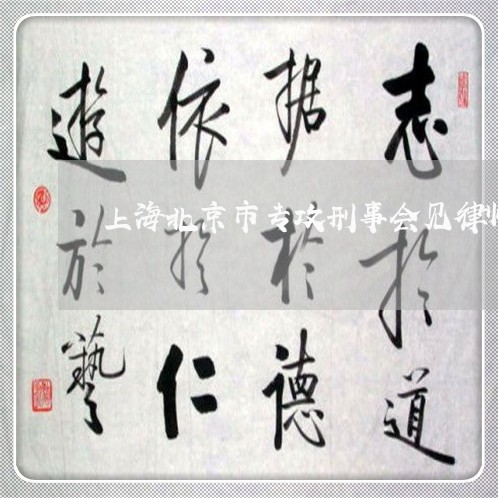 志於道
据於德
依於仁
遊於藝
上海北京市专攻刑事会见律